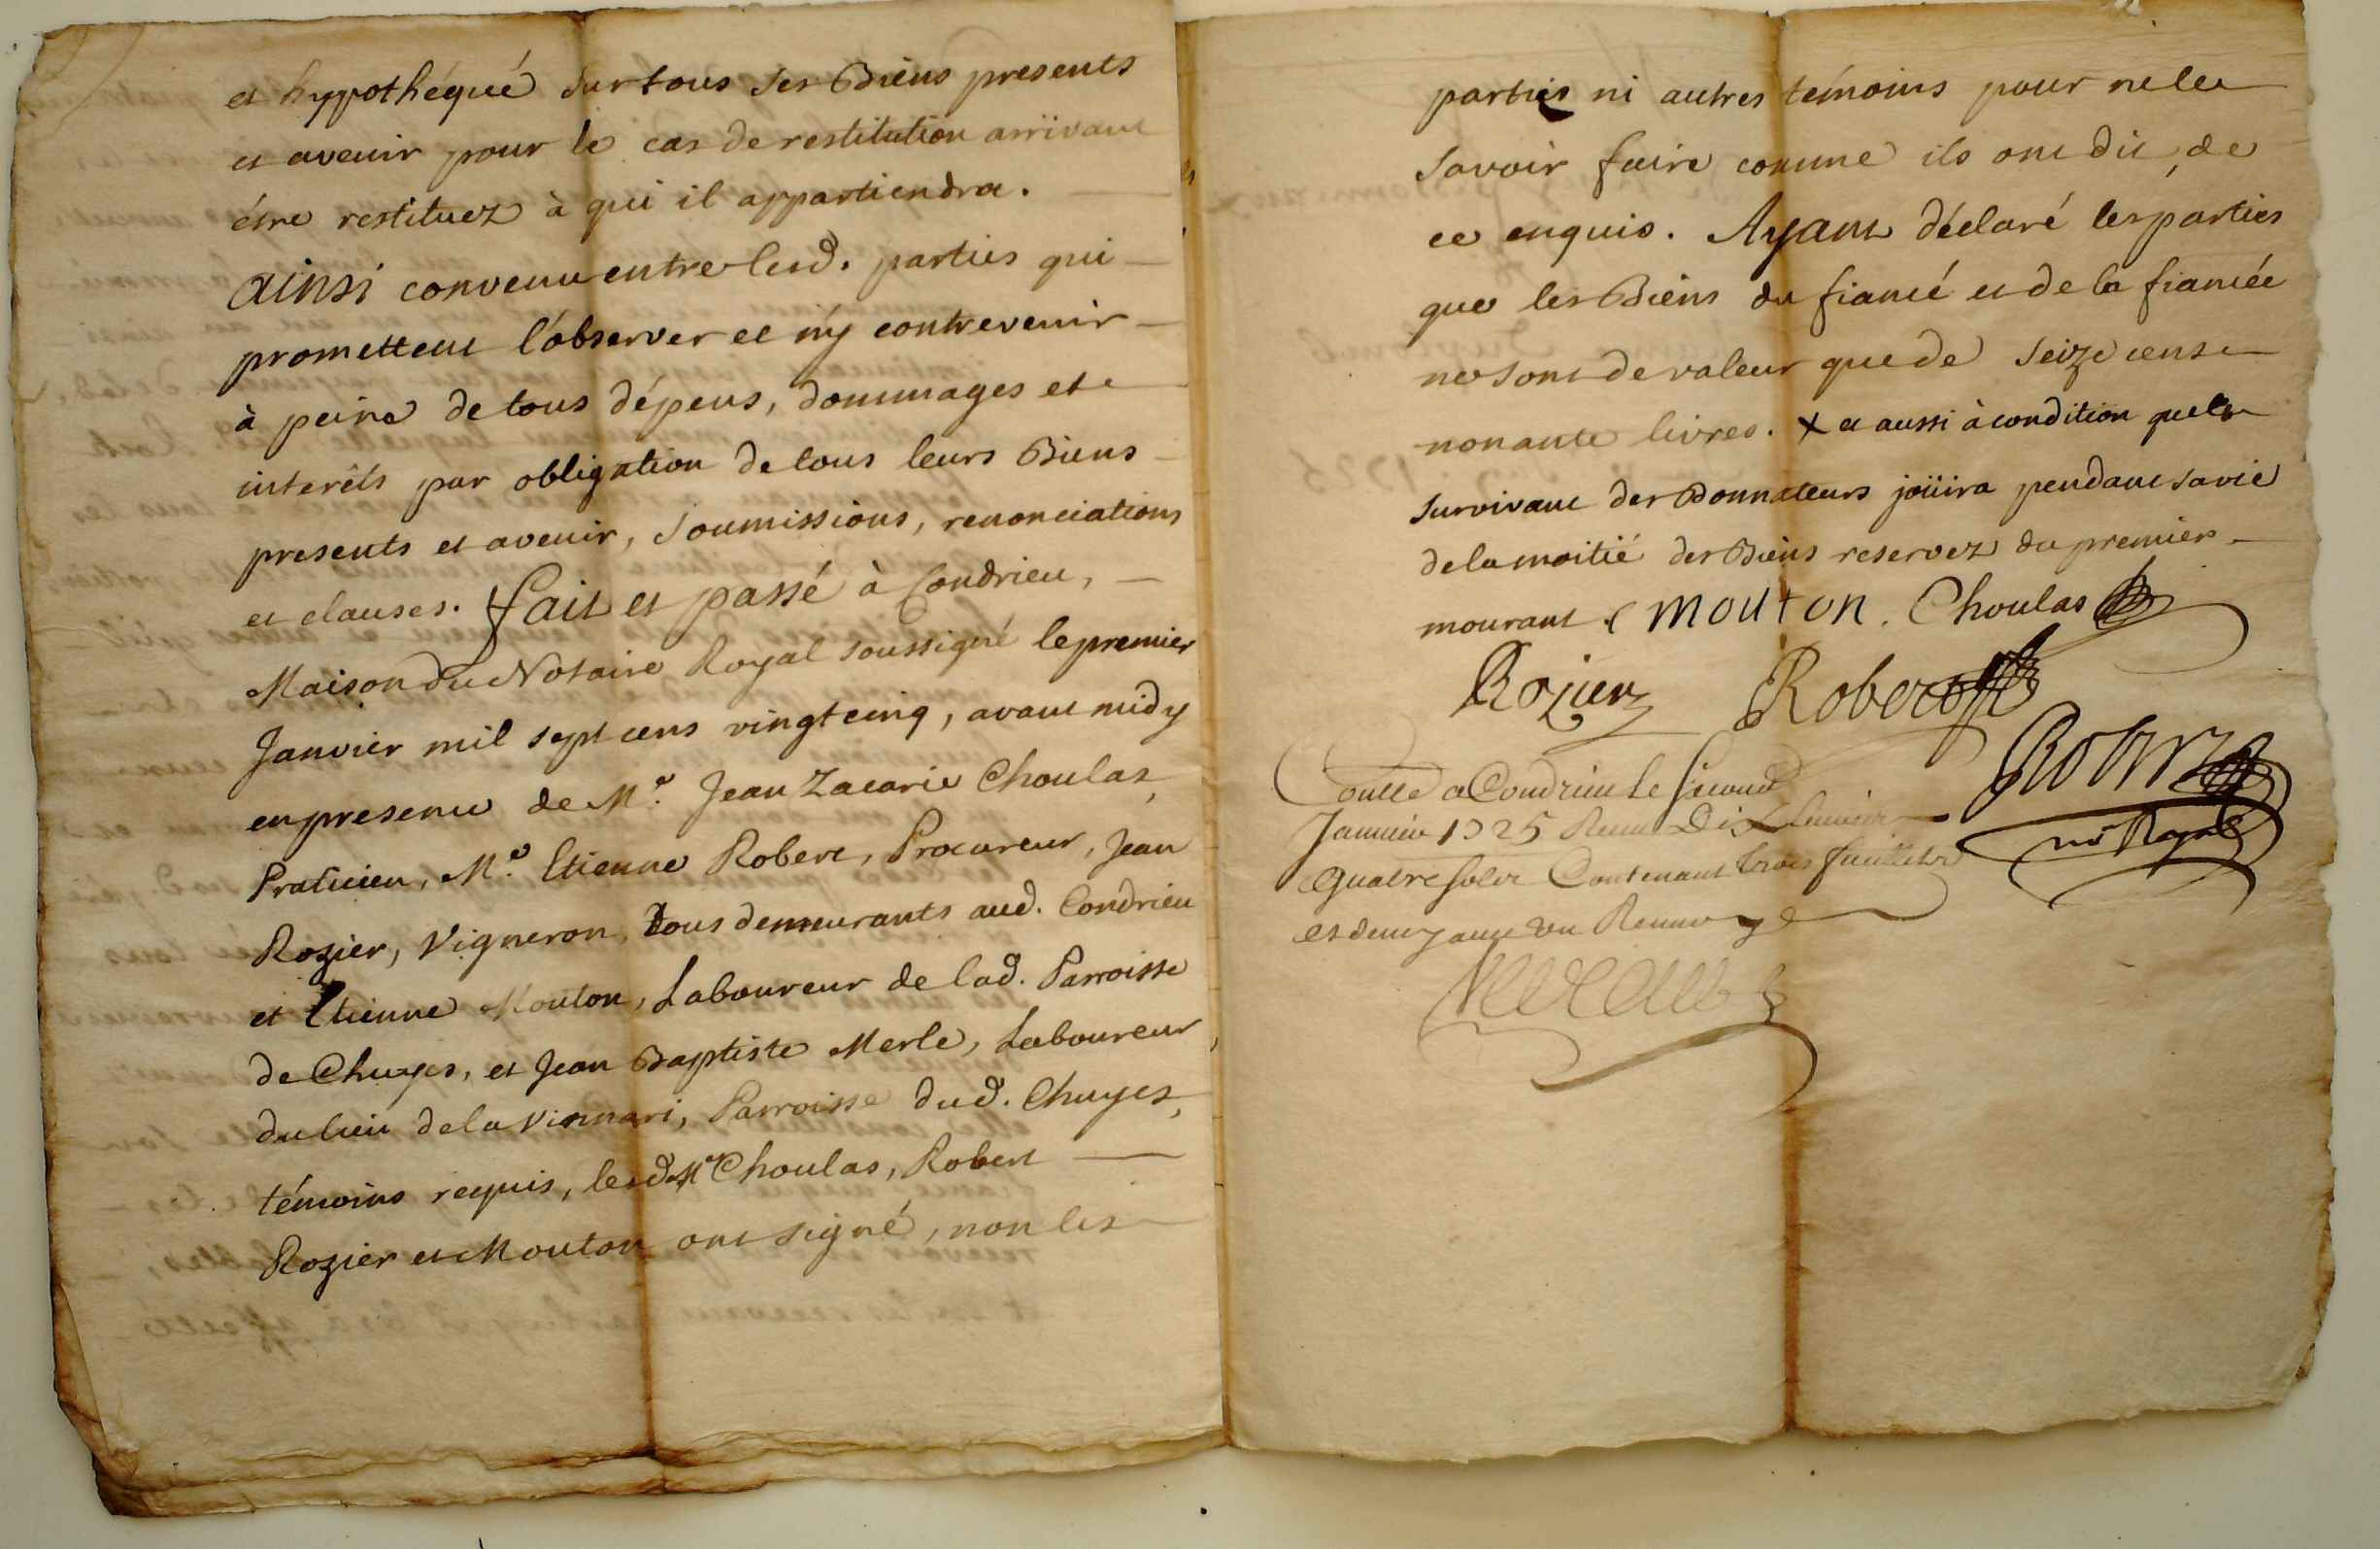 et hypothéqué sur tous ses Biens presents
et avenir pour le cas de restitution arrivant
étre restituez à qui il appartiendra.
Ainsi convenu entre lesd. parties qui
promettent l'observer et n'y contrevenir
à peine de tous dépens, dommages et
interêts par obligation de tous leurs Biens
presents et avenir, soumissions, renonciations
et clauses. fait et passé à Condrieu,
Maison du Notaire Royal soussigné le premier
Janvier mil sept cens vingt cinq, avant midy
en presence de Me. Jean Zacarie Choulas,
Praticien, Me. Etienne Robert, Procureur, Jean
Rozier, Vigneron, tous demeurants aud. Condrieu
et Etienne Mouton, Laboureur de lad. Parroisse
de Chuyes, et Jean Baptiste Merle, Laboureur
du lieu de la Parroisse dud. Chuyes,
témoins requis, lesd. Me Choulas, Robert
Rozier et Mouton ont signé, non les
parties ni autres témoins pour ne le
savoir faire comme ils ont dit, de
ce enquis. Ayant déclaré les parties
que les Biens du fiancé et de la fiancée
ne sont de valeur que de seize cens
nonante livres. X et aussi à condition que le
survivant des Donnateurs joüira pendant sa vie
de la moitié des Biens reservez du premier
mourant. Mouton. Choulas
Rozier Robert
Robert
no Royal
Conllé a Condrieu le second
Janvier 1725 Receu
quatre solz Contenant trois feuillets
et demy avec un Renvoy